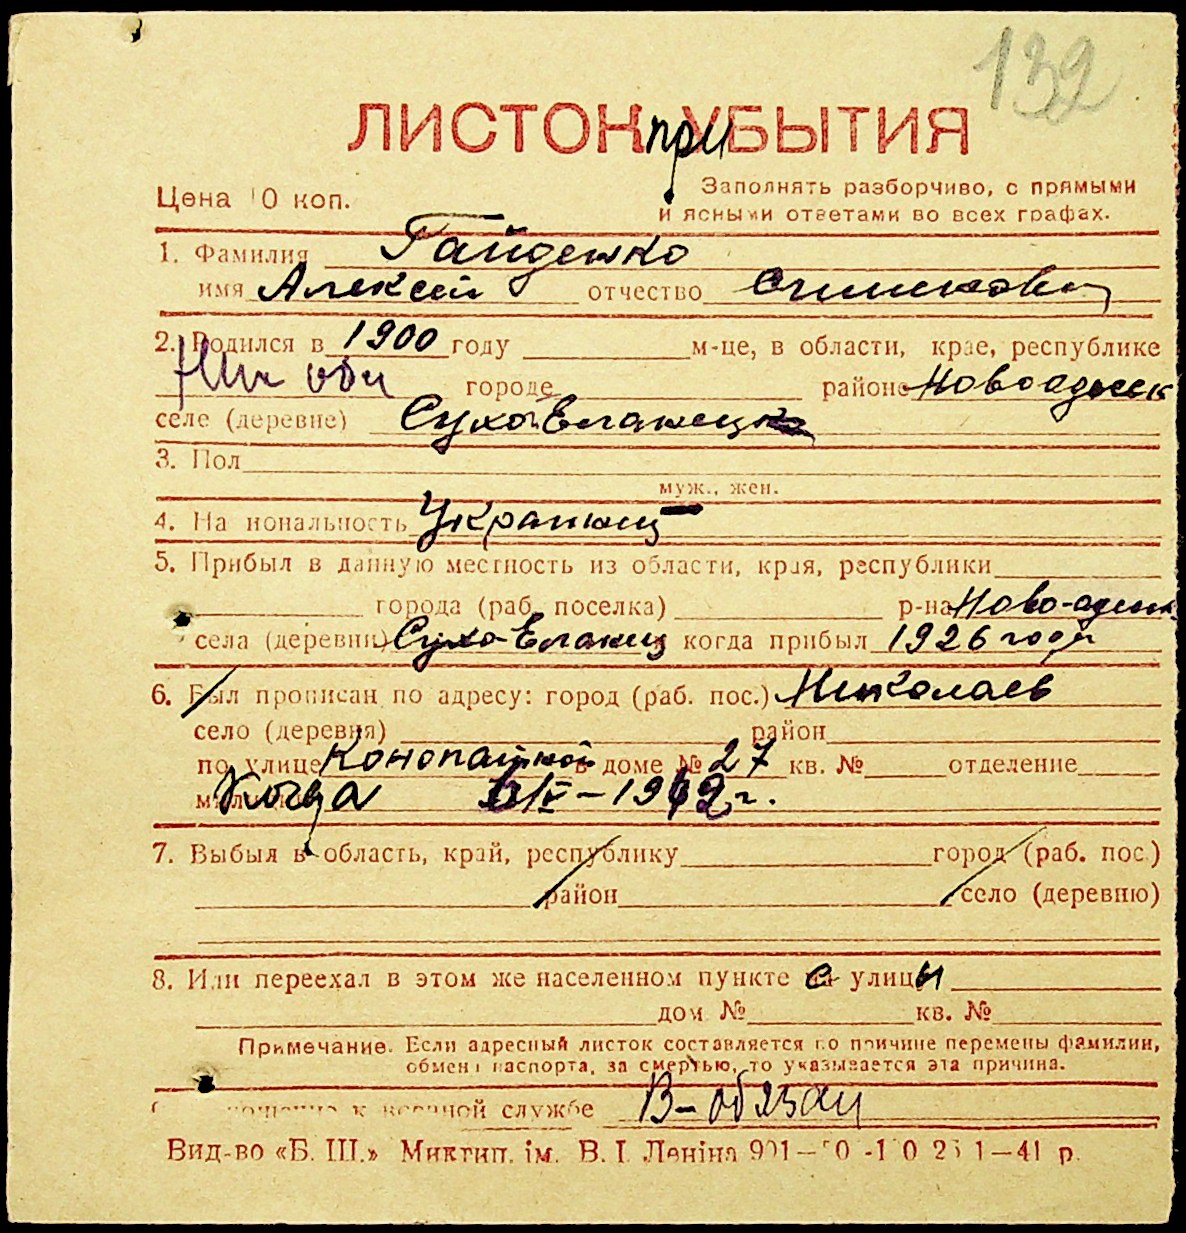 132
ЛИСТОК при УБЫТИЯ
Цена 10 коп. Заполнять разборчиво, с прямыми
и ясными ответами во всех графах.
1. Фамилия Гайденко
имя Алексей отчество
2. Родился в 1900 году м-це, в области, крае, республике
Ник обл городе районе Новоодесск
селе (деревне) Сухой Еланец
3. Пол
муж., жен.
4. Национальность Украинец
5. Прибыл в данную местность из области, края, республики
города (раб. поселка) р-на Ново-одесск
села (деревни) Сухо-Еланец когда прибыл 1926 году
6. Был прописан по адресу: город (раб. пос.) Николаев
село (деревня) район
по улице в доме № 27 кв. № отделение
Когда /V-1942 г.
7. Выбыл в область, край, республику город (раб. пос.)
район село (деревню)
8. Или переехал в этом же населенном пункте с улицы
дом № кв. №
Примечание. Если адресный листок составляется по причине перемены фамилии,
обмена паспорта, за смертью, то указывается эта причина.
к военной службе В-обязан
Вид-во «Б. Ш.» Миктип. ім. В. І. Леніна 1-41 р.